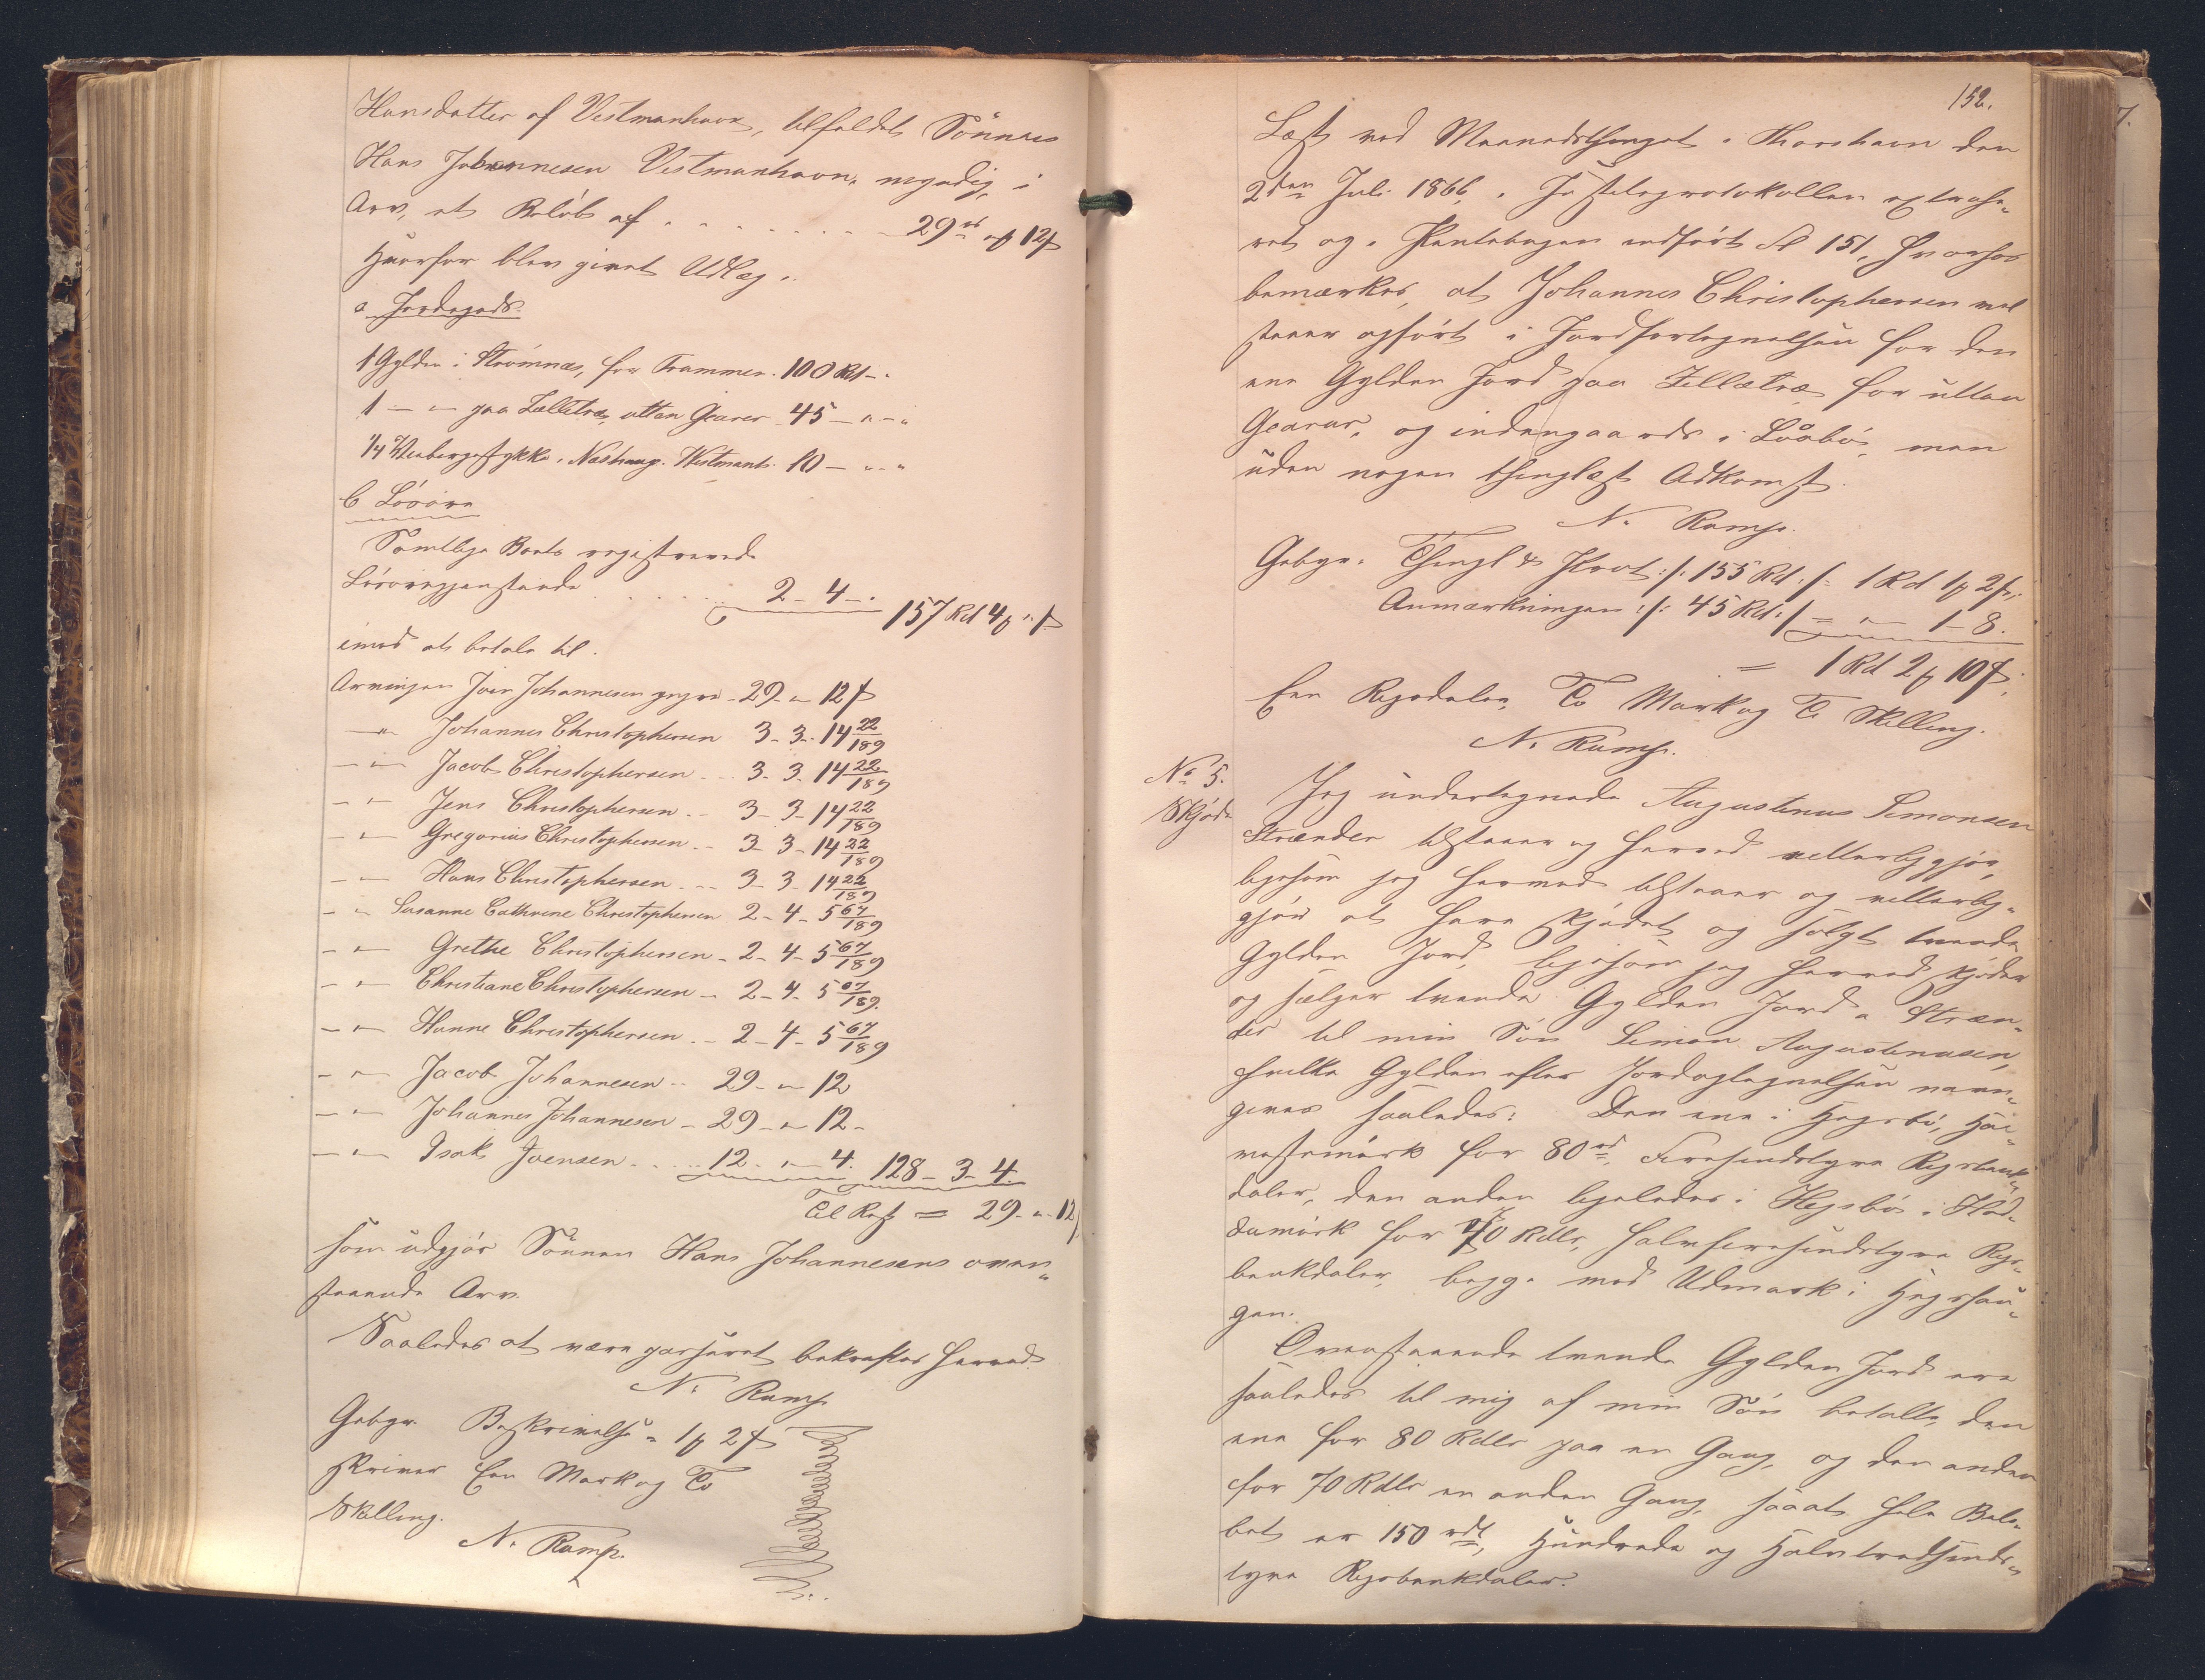 Hansdatter af Vestmanhavn, tilfaldet Sönnen
Hans Johannesen Vestmanhavn, myndig, i
Arv, et Beløb af . . . . . . . 29 rd " 12 s
hvorfor blev givet Udlæg i.
a Jordegods.
1 Gylden i Strömnæs, for Frammen. 100 Rd - "
1 — " — paa Lelletræ, uttan Gearar - 45 — " — "
1/4 , Næshaug. Westmanh. 10 — " — "
b Lösöre
Samtlige Boets registrerede
Lösöregjenstande . . . . . . 2 - 4 - " 157 Rd 4 " s
imod at betale til.
Arvingen Joen Johannesen - 29 - " 12 s
— " — Johannes Christophersen 3 - 3 - 14 22/189
— " — Jacob Christophersen - - 3 - 3 - 14 22/189
— " — Jens Christophersen - - 3 - 3 - 14 22/189
— " — Gregorius Christophersen - - 3 - 3 - 14 22/189
— " — Hans Christophersen - - 3 - 3 - 14 22/189
— " — Susanne Cathrine Christophersen 2 - 4 - 5 67/189
— " — Grethe Christophersen - 2 - 4 - 5 67/189
— " — Christiane Christophersen - 2 - 4 - 5 67/189.
— " — Hanne Christophersen - - 2 - 4 - 5 67/189
— " — Jacob Johannesen - - 29 - " 12
— " — Johannes Johannesen - 29 - " 12 -
— " — Isak Joensen - . . . 12 - " 4. 128 - 3 - 4.
Til Rest = 29 - " - 12 s
som udgjör Sönnen Hans Johannesens oven„
staaende Arv.
Saaledes at være passeret bekræftes herved.
N. Ramp
Gebyr. Beskrivelse = 1 2 s
skriver Een Mark og To
Skilling.
N. Ramp.
152.
Læst ved Maanedsthinget i Thorshavn den
2den Juli 1866, i Justitsprotokollen extrahe„
ret og i Pantebogen indført Fol 151, hvorhos
bemærkes, at Johannes Christophersen vel
staaer opført i Jordfortegnelsen for den
ene Gylden Jord paa Lellætræ for uttan
Gearar, og indengaards i Loåbö, men
uden nogen thinglæst Adkomst.
N. Ramp.
Gebyr. Thingl & Prot :/: 155 Rd :/: 1 Rd 1 2 s;
Anmærkningen :/: 45 Rd :/ = " — 1 - 8.
= 1 Rd 2 10 s;
Een Rigsdaler, To Mark og Ti Skilling.
N. Ramp.
No 5. Jeg undertegnede Augustinus Simonsen
Skjöde Strænder tilstaaer og herved vitterliggjör,
ligesom jeg hermed tilstaaer og vitterlig„
gjör at have skjödet og solgt tvende
Gylden Jord, ligesom jeg herved skjöder
og sælger tvende Gylden Jord a Stræn„
der til min Sön Simon Augustinusen,
hvilke Gylden efter Jordoptegnelsen navn„
gives saaledes: Den ene i Hegsbö,
for 80 rd, Firesindstyve Rigsbank„
daler, den anden ligeledes i Hegsbö i
for 70 Rdlr, halvfiresindstyve Rigs„
bankdaler, begge med Udmark i
gen.
Ovenstaaende tvende Gylden Jord ere
saaledes til mig af min Sön betalt, den
ene for 80 Rdlr paa en Gang, og den anden
for 70 Rdlr en anden Gang, saaat hele Belö„
bet er 150 rdl, Hundrede og Halvtredsinds„
tyve Rigsbankdaler.